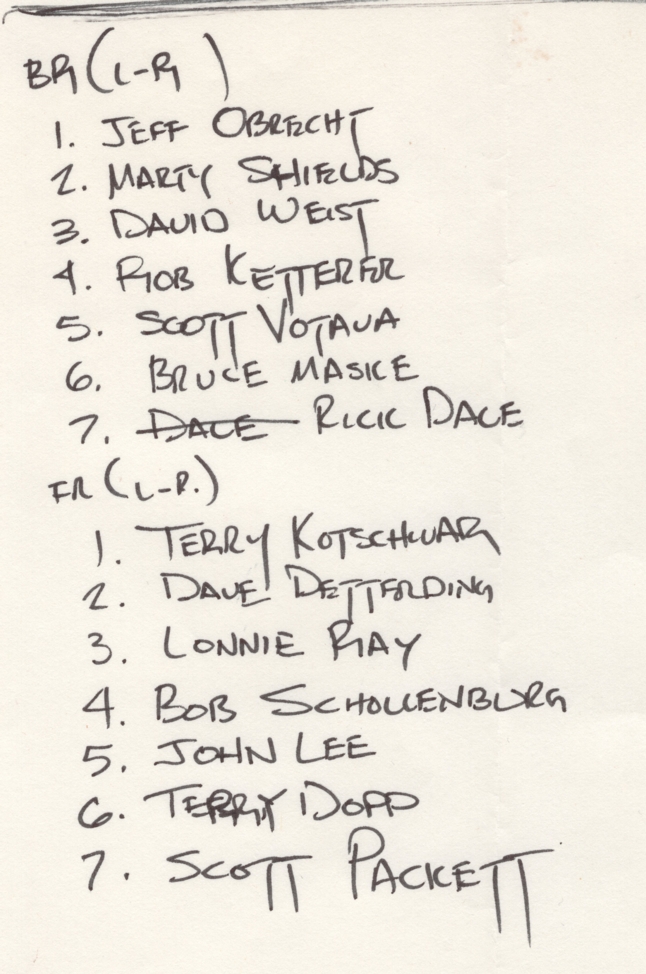 BR (L-R)
1. JEFF OBRECHT
2. MARTY SHIELDS
3. DAVID WEIST
4. ROB KETTERER
5. SCOTT VOTAVA
6. BRUCE MASKE
7. DALE RICK DALE
FR (L-R.)
1. TERRY KOTSCHWAR
2. DAVE DETTERDING
3. LONNIE RAY
4. BOB SCHOLLENBURG
5. JOHN LEE
6. TERRY DOPP
7. SCOTT PACKETT